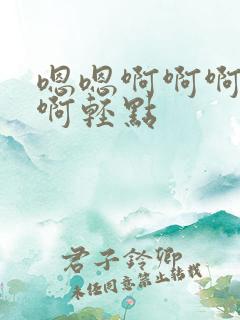 嗯嗯啊啊啊
啊轻點
君子鈴卿
未经同意禁止转载